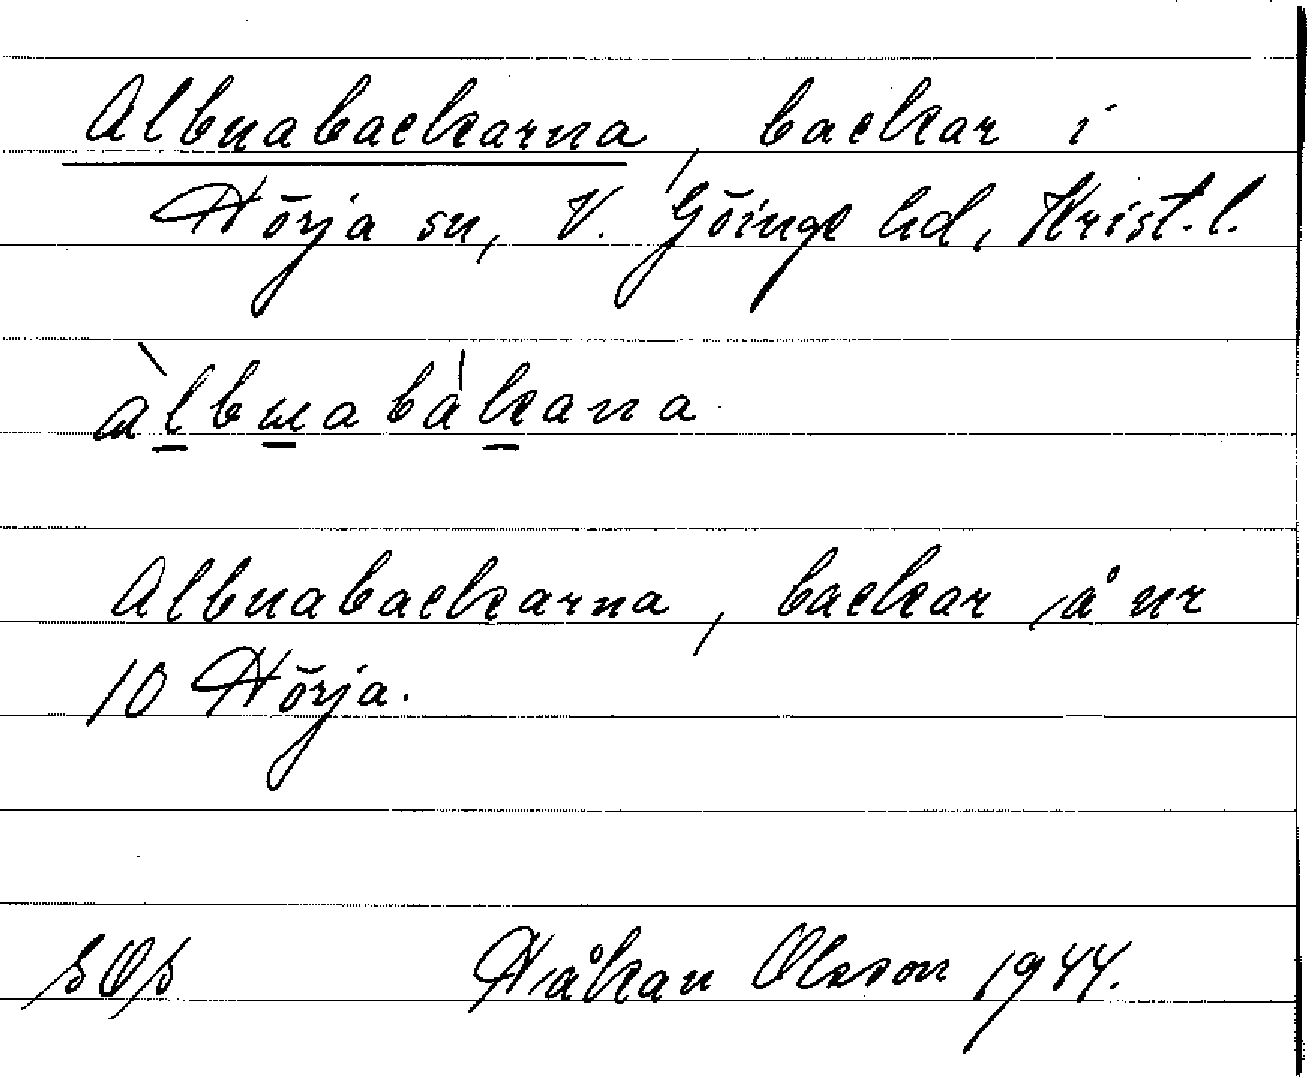 Albuabackarna, backar i
Hörja sn, V. Göinge hd, Krist. l.
àlbuabákana
Albuabackarna, backar å nr
10 Hörja.
Håkan Olsson 1944.